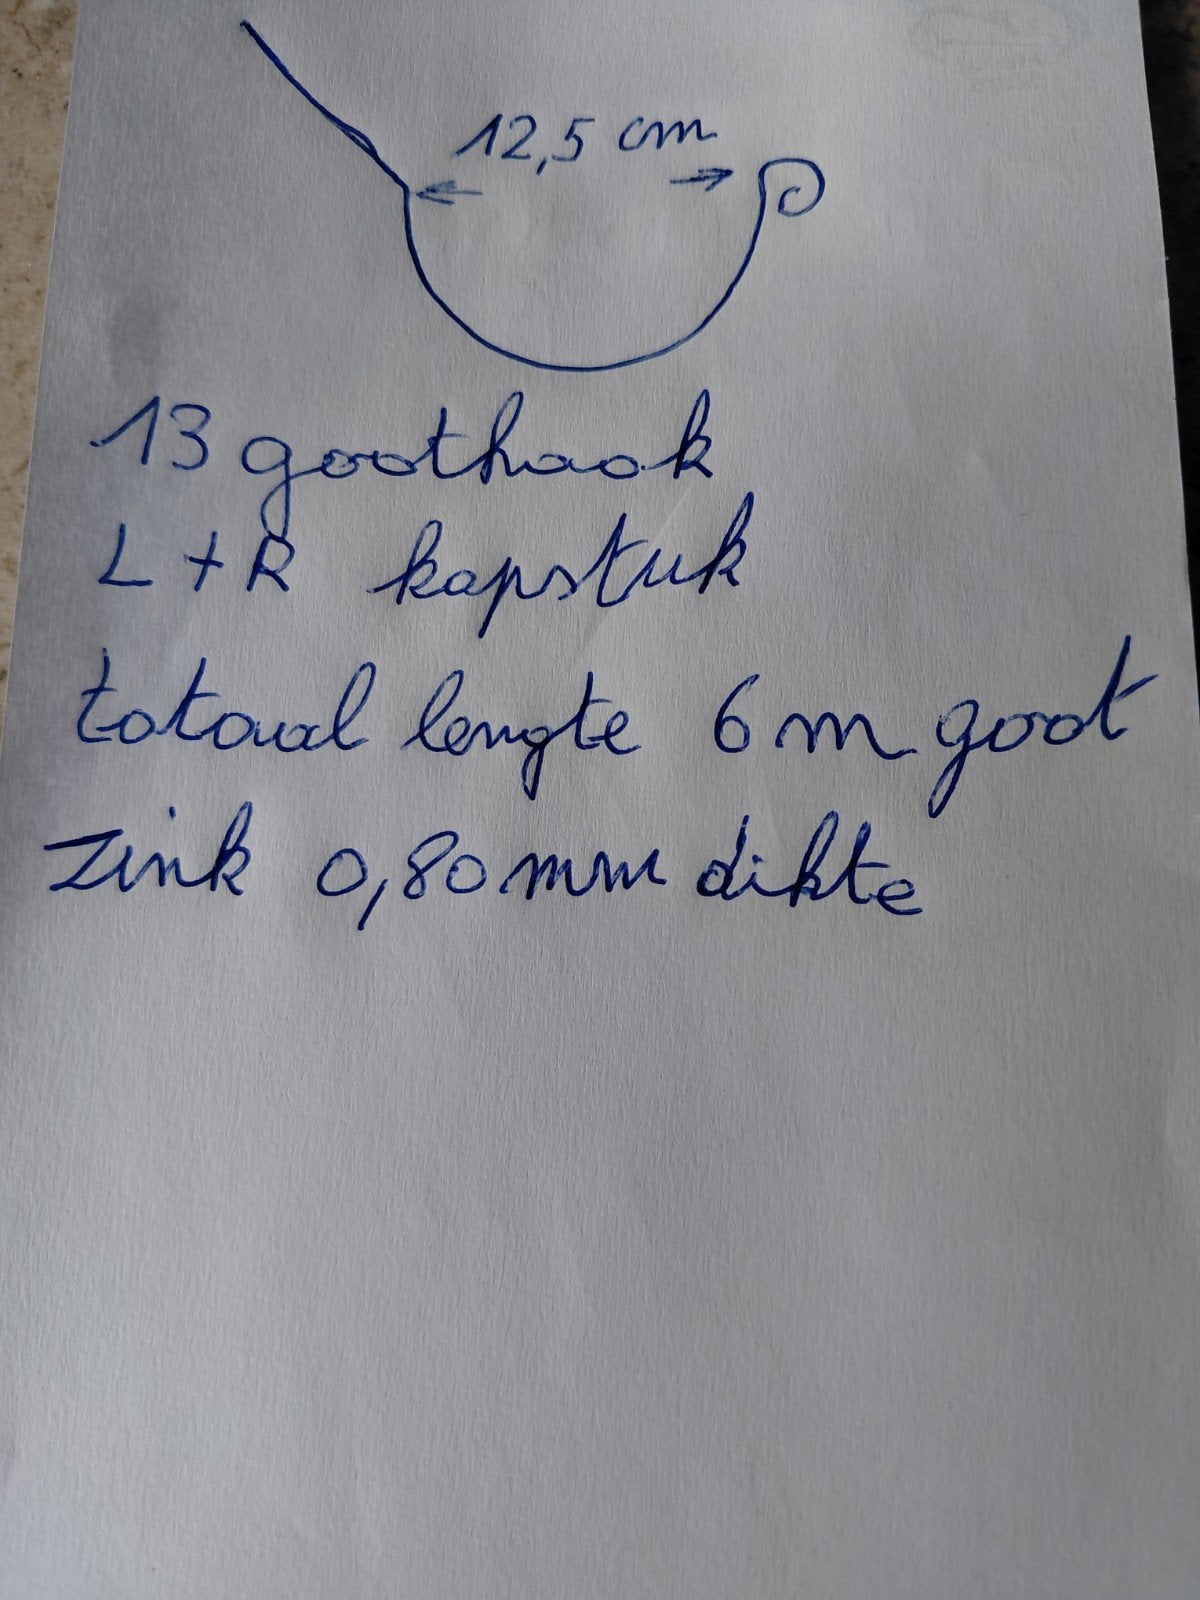 12,5 cm
13 goothaak
L + R kapstuk
totaal lengte 6 m goot
zink 0,80 mm dikte